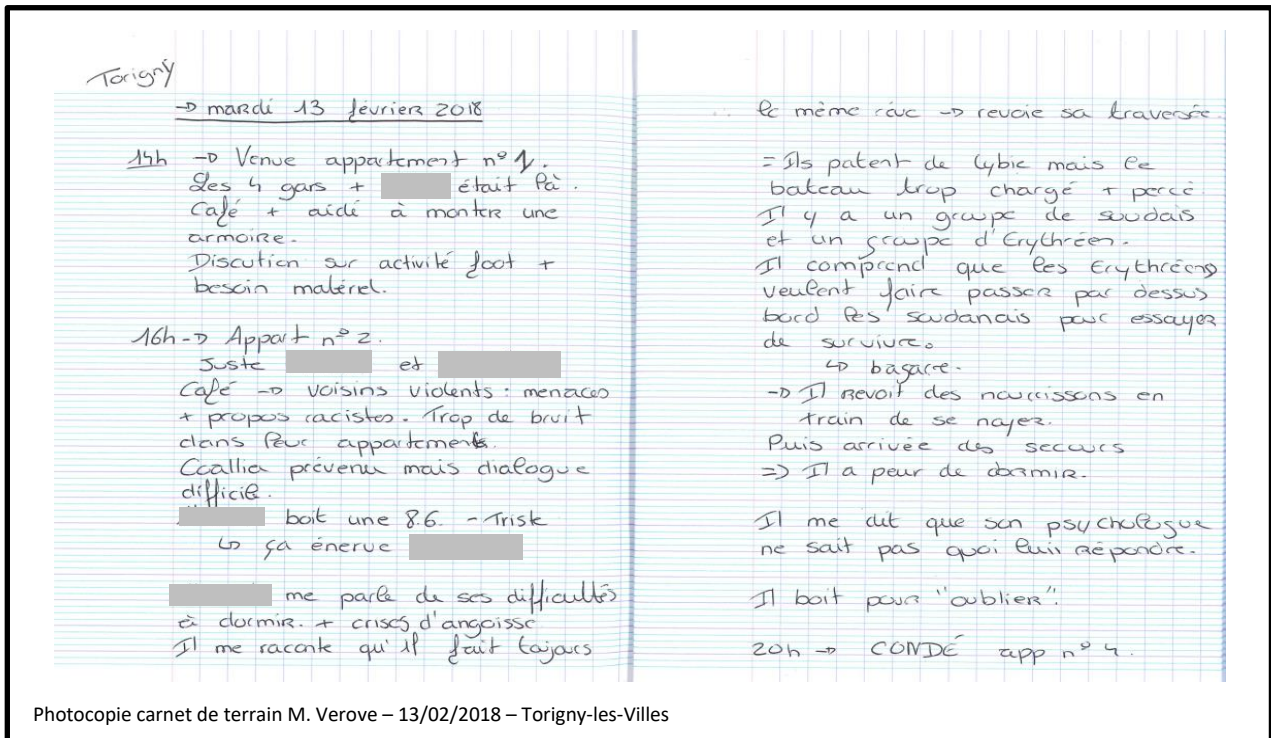 Torigny
→ mardi 13 février 2018
14h → Venue appartement n° 1.
Les 4 gars + était là.
Café + aidé à monter une
armoire.
Discution sur activité foot +
besoin matérel.
16h → Appart n° 2.
Juste et
Café → voisins violents : menaces
+ propos racistes. Trop de bruit
dans leur appartement.
Coallia prévenu mais dialogue
difficile.
boit une 8.6. - Triste
↳ ça énerve
me parle de ses difficultés
à dormir. + crises d'angoisse
Il me raconte qu'il fait toujours
le même rêve → revoie sa traversée.
= Ils patent de Lybie mais le
bateau trop chargé + percé
Il y a un groupe de soudais
et un groupe d'Erythréen.
Il comprend que les Erythréens
veulent faire passer par dessus
bord les soudanais pour essayer
de survivre.
↳ bagarre.
→ Il revoit des nourrissons en
train de se noyer.
Puis arrivée des secours
=> Il a peur de dormir.
Il me dit que son psychologue
ne sait pas quoi luis répondre.
Il boit pour "oublier".
20h → CONDÉ app n° 4.
Photocopie carnet de terrain M. Verove – 13/02/2018 – Torigny-les-Villes